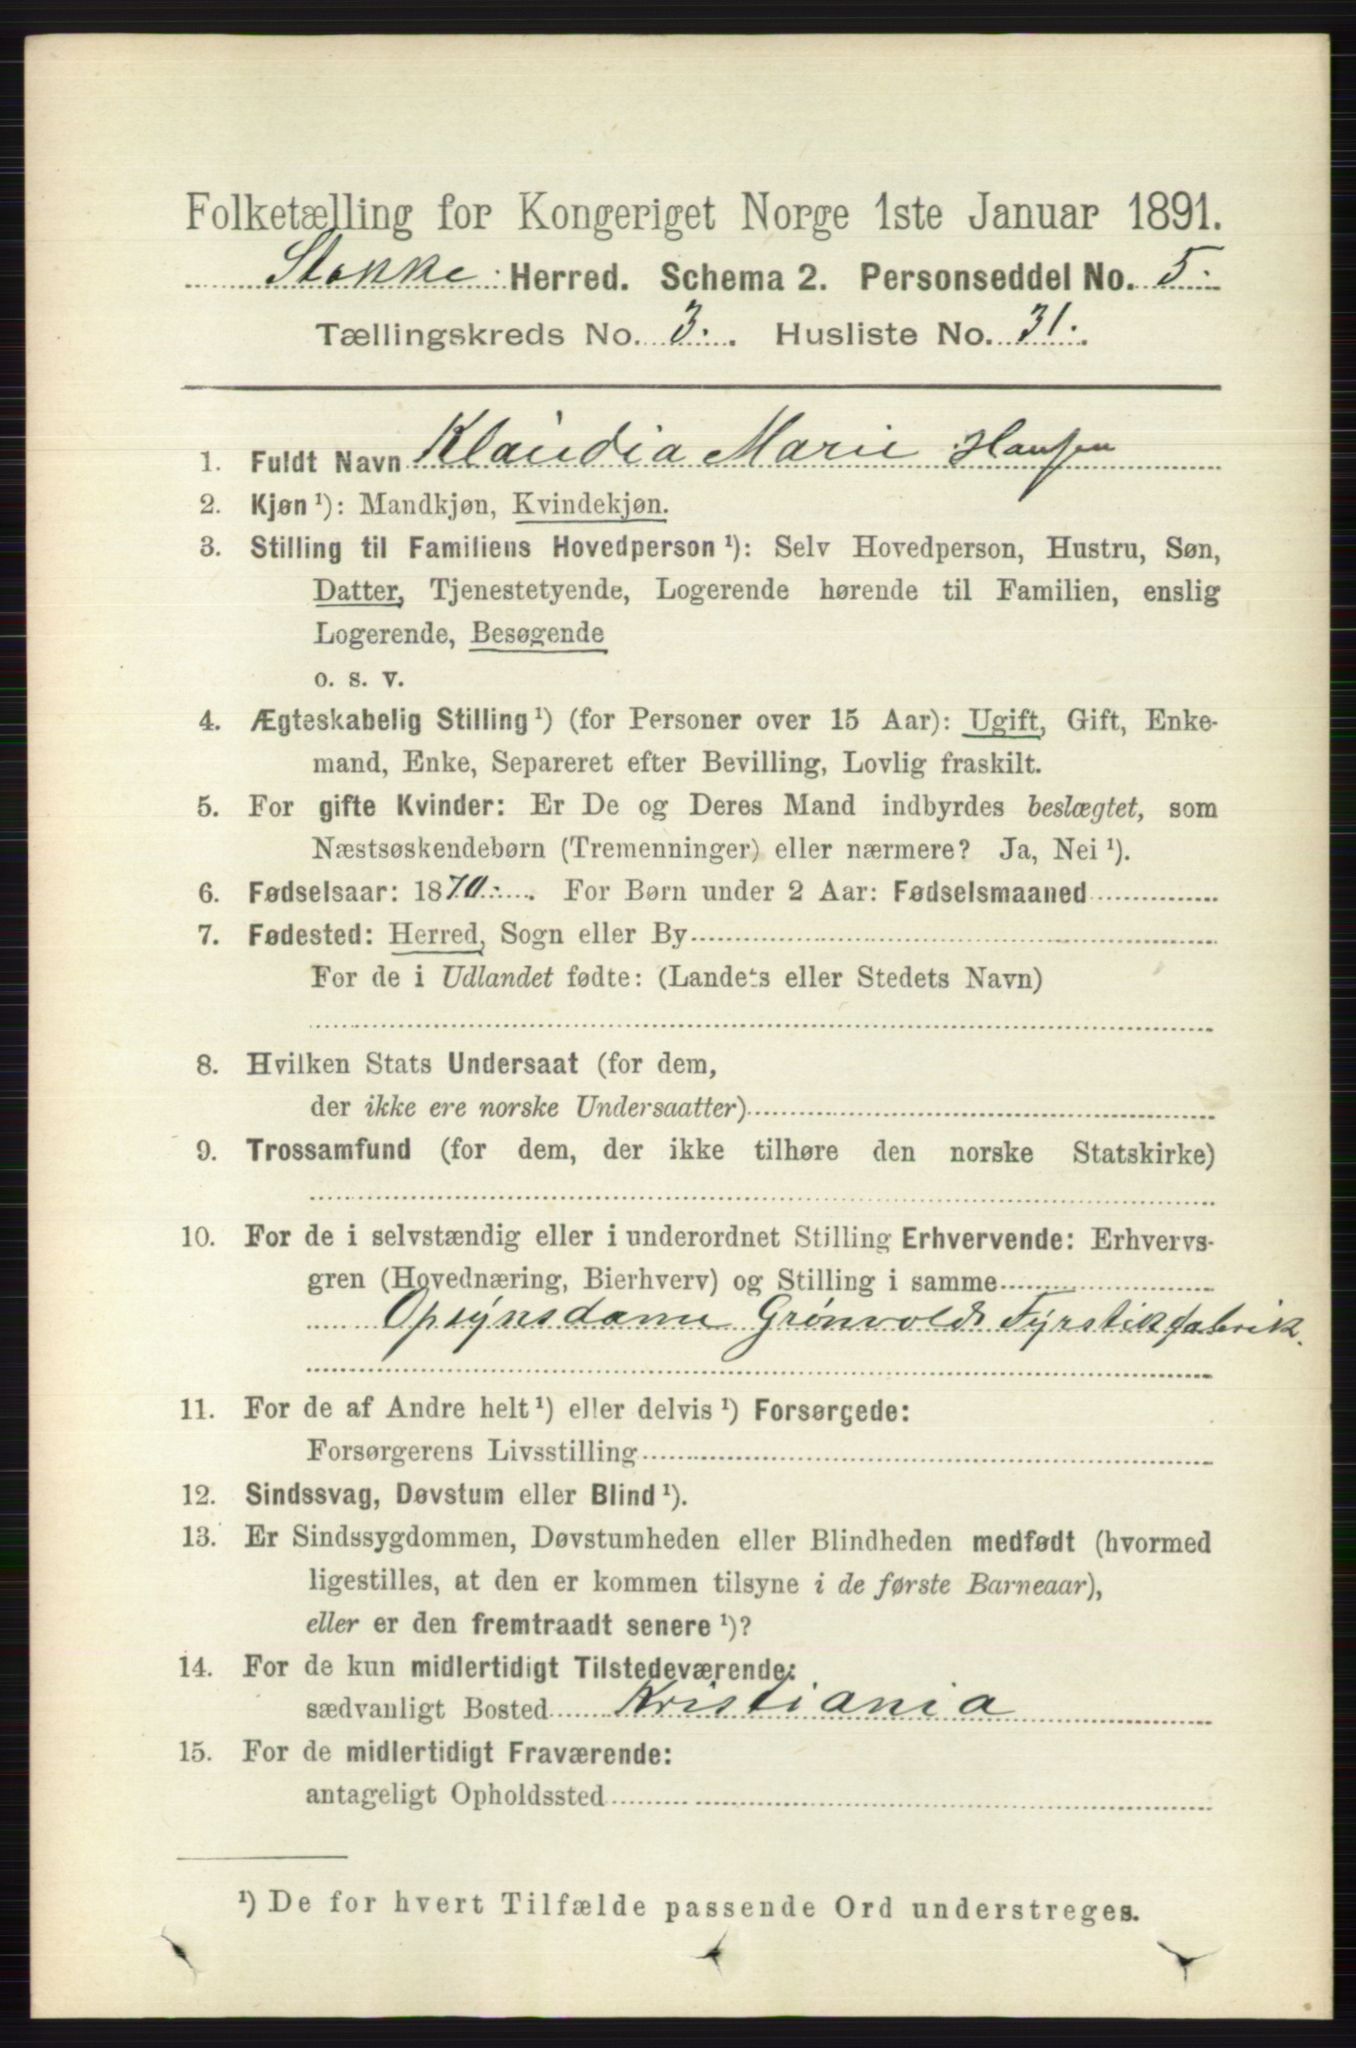 Folketælling for Kongeriget Norge 1ste Januar 1891.
Stokke Herred. Schema 2. Personseddel No. 5.
Tællingskreds No. 3. Husliste No. 31.
1. Fuldt Navn Klaudia Marie Hansen
2. Kjøn ¹): Mandkjøn, Kvindekjøn.
3. Stilling til Familiens Hovedperson ¹): Selv Hovedperson, Hustru, Søn,
Datter, Tjenestetyende, Logerende hørende til Familien, enslig
Logerende, Besøgende
o. s. v.
4. Ægteskabelig Stilling ¹) (for Personer over 15 Aar): Ugift, Gift, Enke-
mand, Enke, Separeret efter Bevilling, Lovlig fraskilt.
5. For gifte Kvinder: Er De og Deres Mand indbyrdes beslægtet, som
Næstsøskendebørn (Tremenninger) eller nærmere? Ja, Nei ¹).
6. Fødselsaar: 1870. For Børn under 2 Aar: Fødselsmaaned
7. Fødested: Herred, Sogn eller By
For de i Udlandet fødte: (Landets eller Stedets Navn)
8. Hvilken Stats Undersaat (for dem,
der ikke ere norske Undersaatter)
9. Trossamfund (for dem, der ikke tilhøre den norske Statskirke)
10. For de i selvstændig eller i underordnet Stilling Erhvervende: Erhvervs-
gren (Hovednæring, Bierhverv) og Stilling i samme
Opsynsdame Grønvolds Fyrstikfabrik.
11. For de af Andre helt ¹) eller delvis ¹) Forsørgede:
Forsørgerens Livsstilling
12. Sindssvag, Døvstum eller Blind ¹).
13. Er Sindssygdommen, Døvstumheden eller Blindheden medfødt (hvormed
ligestilles, at den er kommen tilsyne i de første Barneaar),
eller er den fremtraadt senere ¹)?
14. For de kun midlertidigt Tilstedeværende:
sædvanligt Bosted Kristiania
15. For de midlertidigt Fraværende:
antageligt Opholdssted
¹) De for hvert Tilfælde passende Ord understreges.